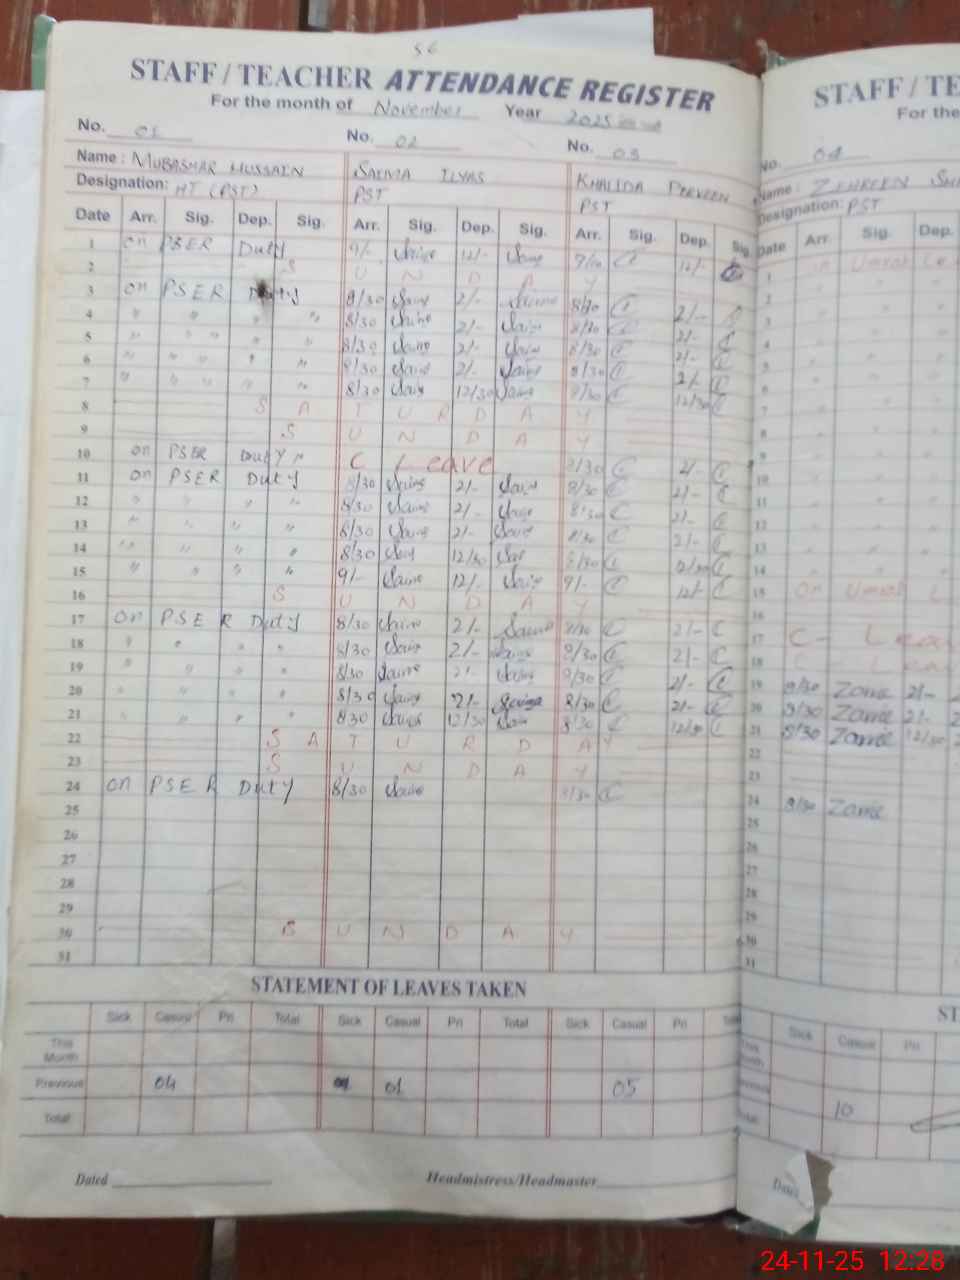 56
STAFF / TEACHER ATTENDANCE REGISTER
For the month of November Year 2025
No. 01 No. 02 No. 03
Name : MUBASHAR HUSSAIN SALMA ILYAS KHALIDA PERVEEN
Designation: HT (PST) PST PST
Date Arr. Sig. Dep. Sig. Arr. Sig. Dep. Sig. Arr. Sig. Dep. Sig.
1 on PSER Duty 9/- 12/- 9/00 12/-
2 S U N D A Y
3 on PSER Duty 8/30 2/- 8/30 2/-
4 " " " " 8/30 2/- 8/30 2/-
5 " " " " " 8/30 2/- 8/30 2/-
6 " " " " " 8/30 2/- 8/30 2/-
7 " " " " " 8/30 12/30 8/30 12/30
8 S A T U R D A Y
9 S U N D A Y
10 on PSER Duty " C Leave 8/30 2/-
11 on PSER Duty 8/30 2/- 8/30 2/-
12 " " " " 8/30 2/- 8/30 2/-
13 " " " " 8/30 2/- 8/30 2/-
14 " " " " 8/30 12/30 8/30 12/30
15 " " " " 9/- 12/- 9/- 12/-
16 S U N D A Y
17 on PSER Duty 8/30 2/- 8/30 2/-
18 " " " " 8/30 2/- 8/30 2/-
19 " " " " 8/30 2/- 8/30 2/-
20 " " " " 8/30 2/- 8/30 2/-
21 " " " " 8/30 12/30 8/30 12/30
22 S A T U R D A Y
23 S U N D A Y
24 on PSER Duty 8/30 8/30
25
26
27
28
29
30 S U N D A Y
31
STATEMENT OF LEAVES TAKEN
Sick Casual Pri Total Sick Casual Pri Total Sick Casual Pri
This Month
Previous 04 01 05
Total
Dated Headmistress/Headmaster
STAFF / TE
For the
No. 04
Name : ZEHREEN
Designation: PST
Date Arr. Sig. Dep.
1 on Umrah Le
2
3
4
5
6
7
8
9
10
11
12
13
14
15 on Umrah L
16
17 C - Lea
18 C Lea
19 8/30 2/-
20 8/30 2/-
21 8/30 12/30
22
23
24 8/30
25
26
27
28
29
30
31
ST
Sick Casual Pri
10
24-11-25 12:28